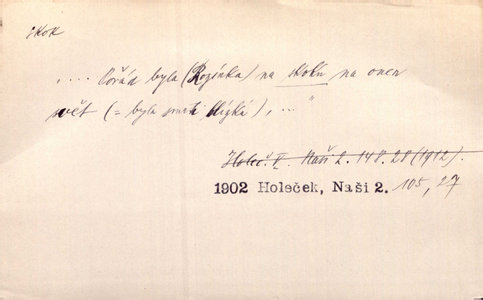 skok
.... Pořád byla (Rozínka) na skoku na onen
svět (= byla smrti blízká), ... "
Holeč. V. Naši 2. 148. 28 (1912).
1902 Holeček, Naši 2. 105, 27